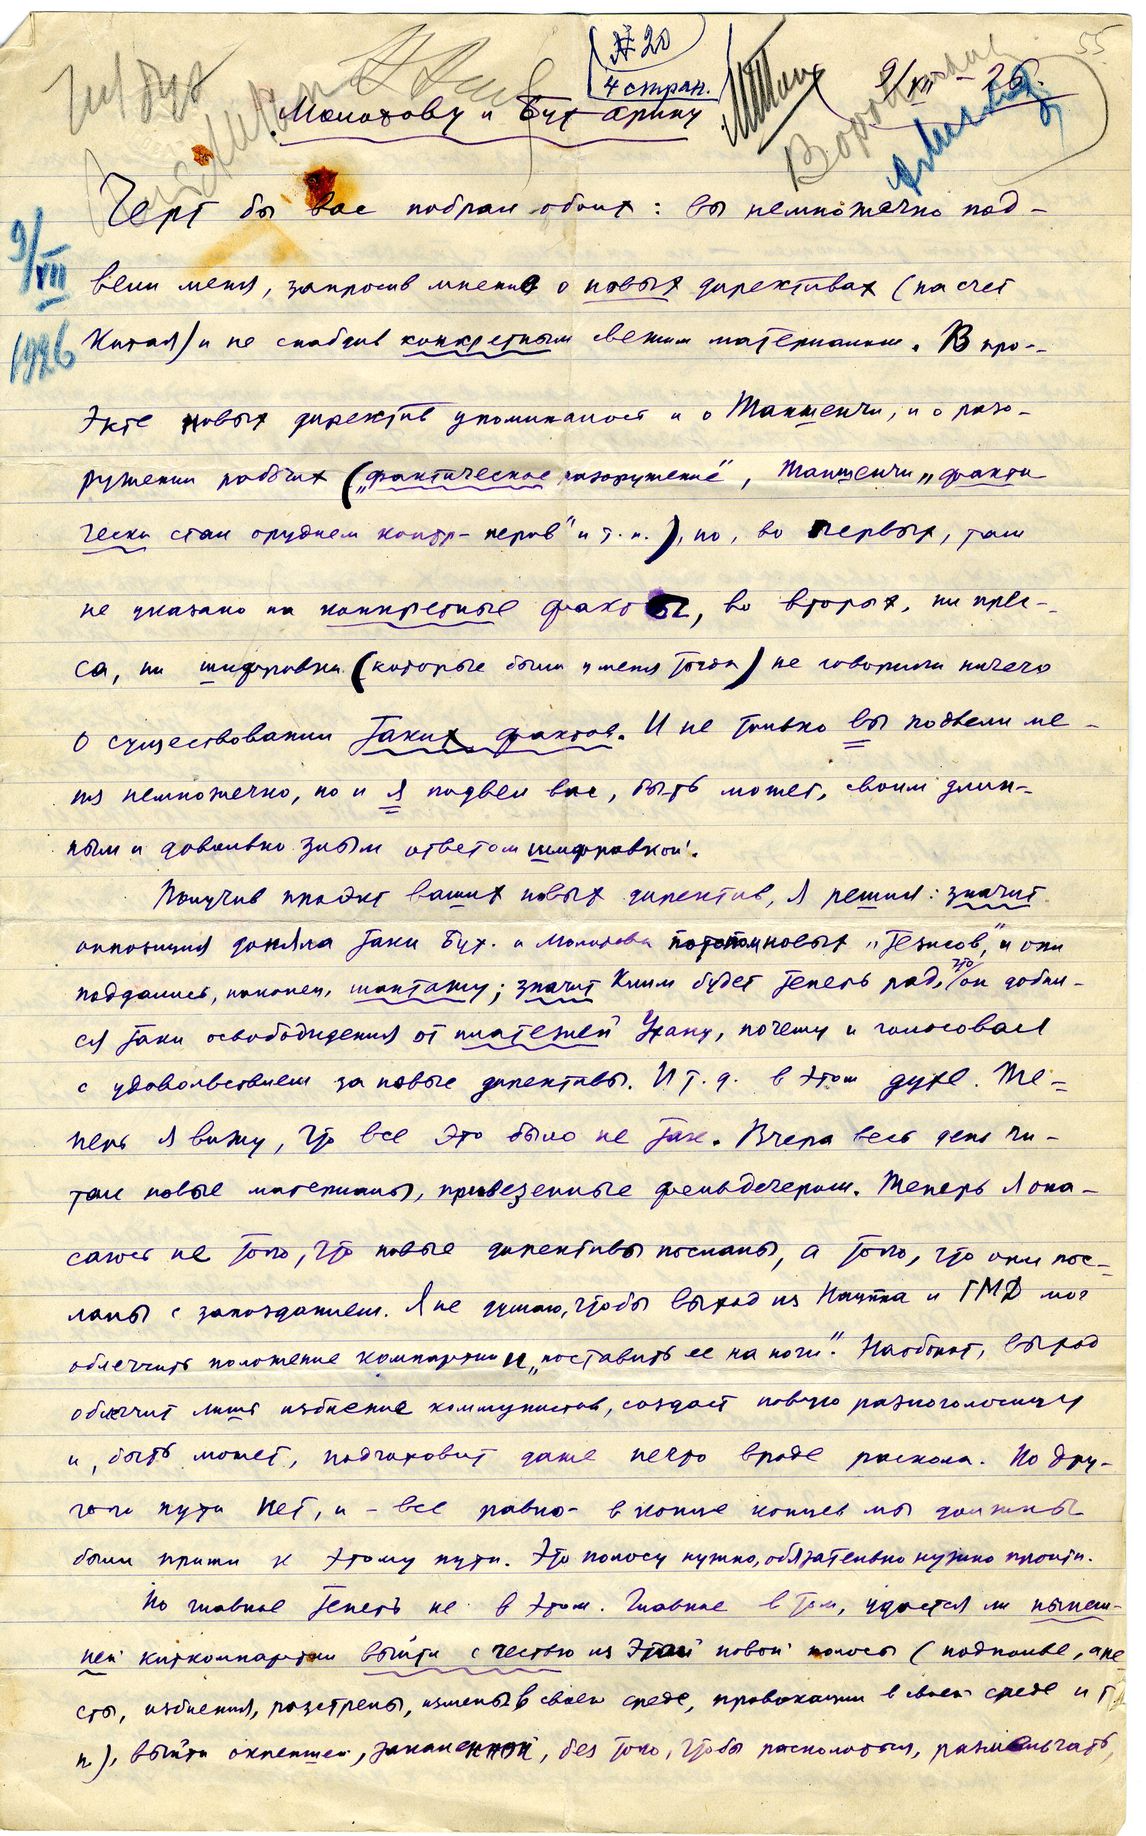 № 20
4 стран.
9/VII – 26.
55
Молотову и Бухарину
Черт бы вас побрал обоих: вы немножечко под-
9/VII
1926
вели меня, запросив мнение о новых директивах (насчет
Китая) и не снабдив конкретным свежим материалом. В про-
экте новых директив упоминалось и о Таншенчи, и о разо-
ружении рабочих („фактическое разоружение“, Таншенчи „факти
чески стал орудием контр-перов“ и т.п.), но, во первых, там
не указано на конкретные факты, во вторых, ни прес-
са, ни шифровки (которые были у меня тогда) не говорили ничего
о существовании таких фактов. И не только вы подвели ме-
ня немножечко, но и я подвел вас, быть может, своим длин-
ным и довольно злым ответом шифровкой.
Получив проэкт ваших новых директив, я решил: значит
оппозиция доняла таки Бух. и Молотова потоком новых „тезисов“, и они
поддались, наконец, шантажу; значит Клим будет теперь рад, что он добил-
ся таки освобождения от платежей Ухану, почему и голосовал
с удовольствием за новые директивы. И т.д. в этом духе. Те-
перь я вижу, что все это было не так. Вчера весь день чи-
тал новые материалы, привезенные фельдегерем. Теперь я опа-
саюсь не того, что новые директивы посланы, а того, что они пос-
ланы с запозданием. Я не думаю, чтобы выход из Нацпра и ГМД мог
облегчить положение компартии и „поставить ее на ноги“. Наоборот, выход
облегчит лишь избиение коммунистов, создаст новую разноголосицу
и, быть может, подготовит даже нечто вроде раскола. Но дру-
гого пути нет, и – все равно – в конце концов мы должны
были прийти к этому пути. Эту полосу нужно, обязательно нужно пройти.
Но главное теперь не в этом. Главное в том, удастся ли нынеш-
ней киткомпартии выйти с честью из этой новой полосы (подполье, аре
сты, избиения, расстрелы, измены в своей среде, провокации в своей среде и т.
п.), выйти окрепшей, закаленной, без того, чтобы расколоться, размельчать,